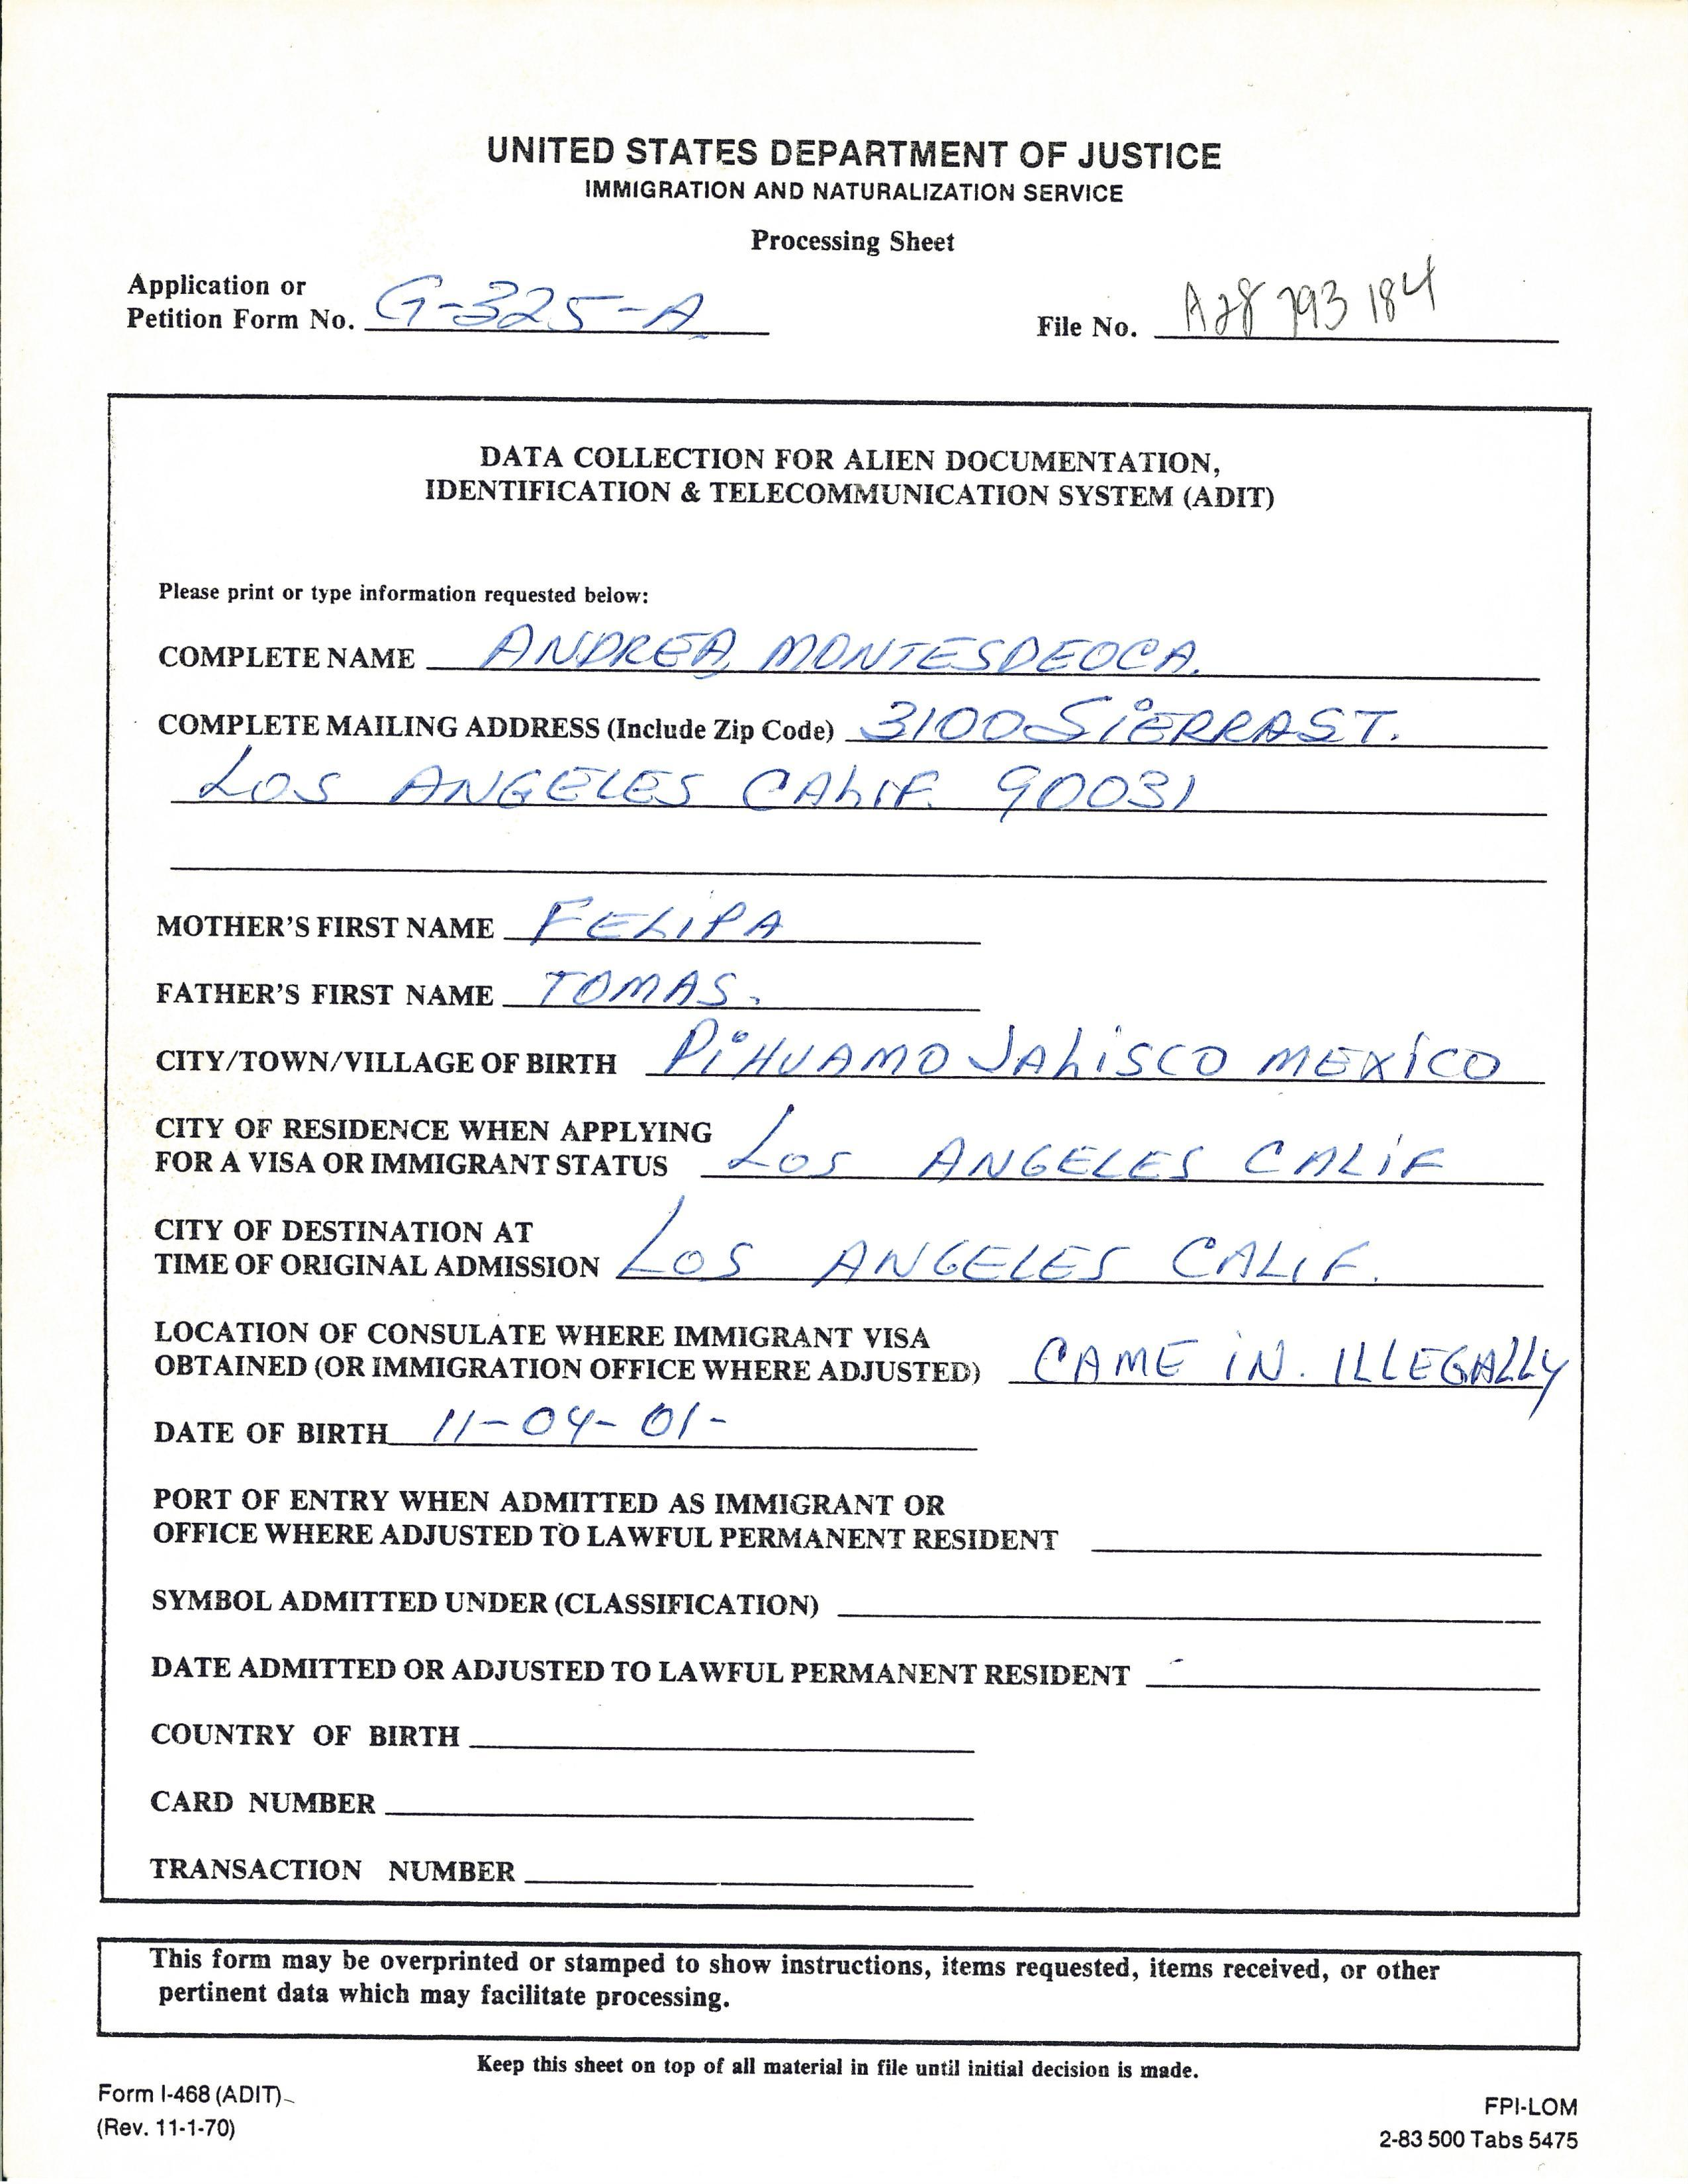 UNITED STATES DEPARTMENT OF JUSTICE
IMMIGRATION AND NATURALIZATION SERVICE
Processing Sheet
Application or
Petition Form No. G-325-A
File No. A28 793 184
DATA COLLECTION FOR ALIEN DOCUMENTATION,
IDENTIFICATION & TELECOMMUNICATION SYSTEM (ADIT)
Please print or type information requested below:
COMPLETE NAME ANDREA MONTESDEOCA.
COMPLETE MAILING ADDRESS (Include Zip Code) 3100 SiERRA ST.
LOS ANGELES CALIF. 90031
MOTHER'S FIRST NAME FELIPA
FATHER'S FIRST NAME TOMAS.
CITY/TOWN/VILLAGE OF BIRTH PiHUAMO JALiSCO MEXiCO
CITY OF RESIDENCE WHEN APPLYING
FOR A VISA OR IMMIGRANT STATUS LOS ANGELES CALiF
CITY OF DESTINATION AT
TIME OF ORIGINAL ADMISSION LOS ANGELES CALIF.
LOCATION OF CONSULATE WHERE IMMIGRANT VISA
OBTAINED (OR IMMIGRATION OFFICE WHERE ADJUSTED) CAME iN. ILLEGALLY
DATE OF BIRTH 11-04-01-
PORT OF ENTRY WHEN ADMITTED AS IMMIGRANT OR
OFFICE WHERE ADJUSTED TO LAWFUL PERMANENT RESIDENT
SYMBOL ADMITTED UNDER (CLASSIFICATION)
DATE ADMITTED OR ADJUSTED TO LAWFUL PERMANENT RESIDENT -
COUNTRY OF BIRTH
CARD NUMBER
TRANSACTION NUMBER
This form may be overprinted or stamped to show instructions, items requested, items received, or other
pertinent data which may facilitate processing.
Keep this sheet on top of all material in file until initial decision is made.
Form I-468 (ADIT)
(Rev. 11-1-70)
FPI-LOM
2-83 500 Tabs 5475